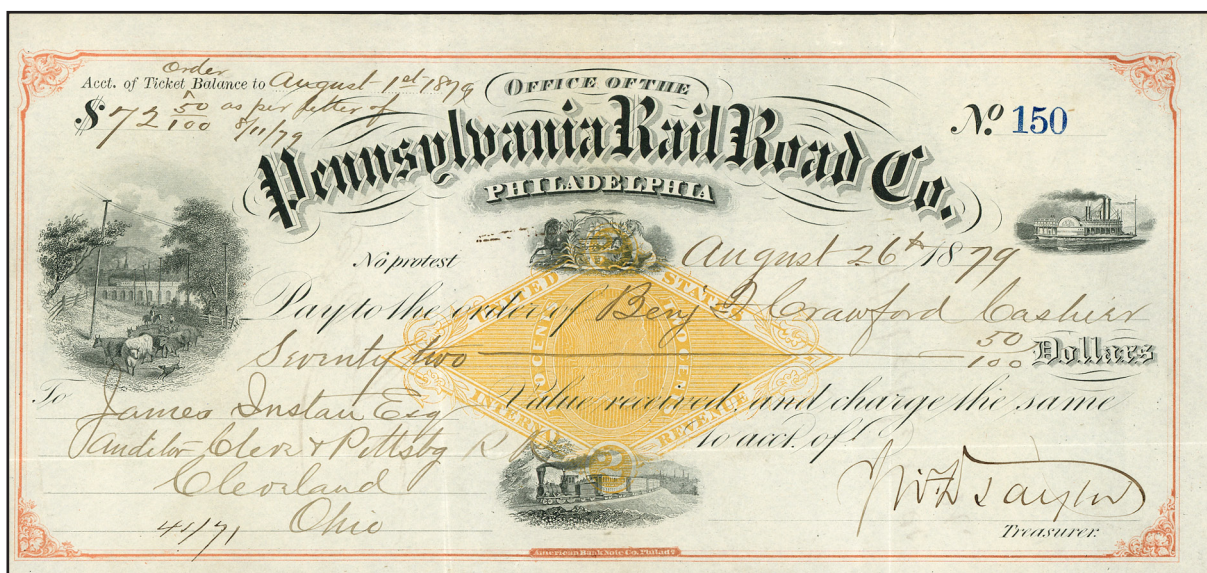 Order
Acct. of Ticket Balance to August 1st 1879
$ 72 50/100 as per letter of
8/11/79
OFFICE OF THE
Pennsylvania Rail Road Co.
PHILADELPHIA
No. 150
No protest
August 26th 1879
Pay to the order of Benj F Crawford Cashier
Seventy two 50/100 Dollars
UNITED STATES
INTERNAL REVENUE
2
To James Esq
Value received and charge the same
Auditor Cleve & Pittsbg R R
to acct. of
Cleveland
Ohio
Taylor
Treasurer.
American Bank Note Co. Philada.